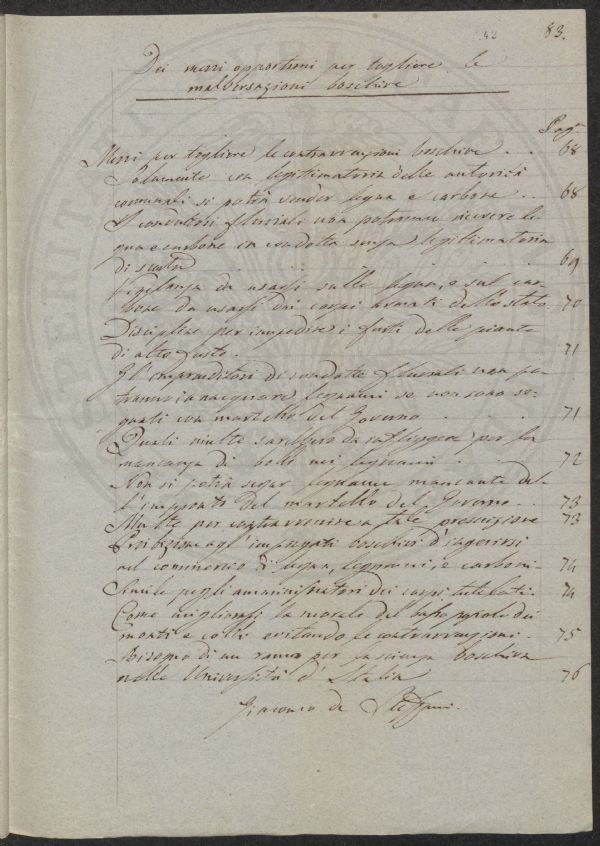 42 83.
Dei mezzi opportuni per togliere le
malversazioni boschive
Pag.
Mezzi per togliere le contravvenzioni boschive . . 68
Solamente con legittimatoria delle autorità
comunali si potrà vender legna e carbone . . 68
I conduttori fluviali non potranno ricevere le-
gna e carbone in condotta senza legittimatoria
di scorta . . . . . 69
Vigilanza da usarsi sulle legna, e sul car-
bone da usarsi dai corpi armati dello stato 70
Discipline per impedire i furti delle piante
di alto fusto . 71
Gl'imprenditori di condotte fluviali non po-
tranno innacquare legnami se non sono se-
gnati con martello del Governo . . . 71
Quali multe sarebbero da infliggere per la
mancanza di bollo nei legnami . . 72
Non si potrà segar legname mancante del-
l'impronti del martello del Governo . . 73
Multe per contravvenire a tale prescrizione 73
Proibizione agl'impiegati boschivi d'ingerirsi
nel commercio di legna, legnami, e carboni- 74
Simile pegli amministratori dei corpi tutelati- 74
Come migliorasi la morale del popolo dei
monti e colli evitando le contravvenzioni . 75
Bisogno di un ramo per la scienza boschiva
nelle Università d'Italia 76
Giacomo de Steffani.